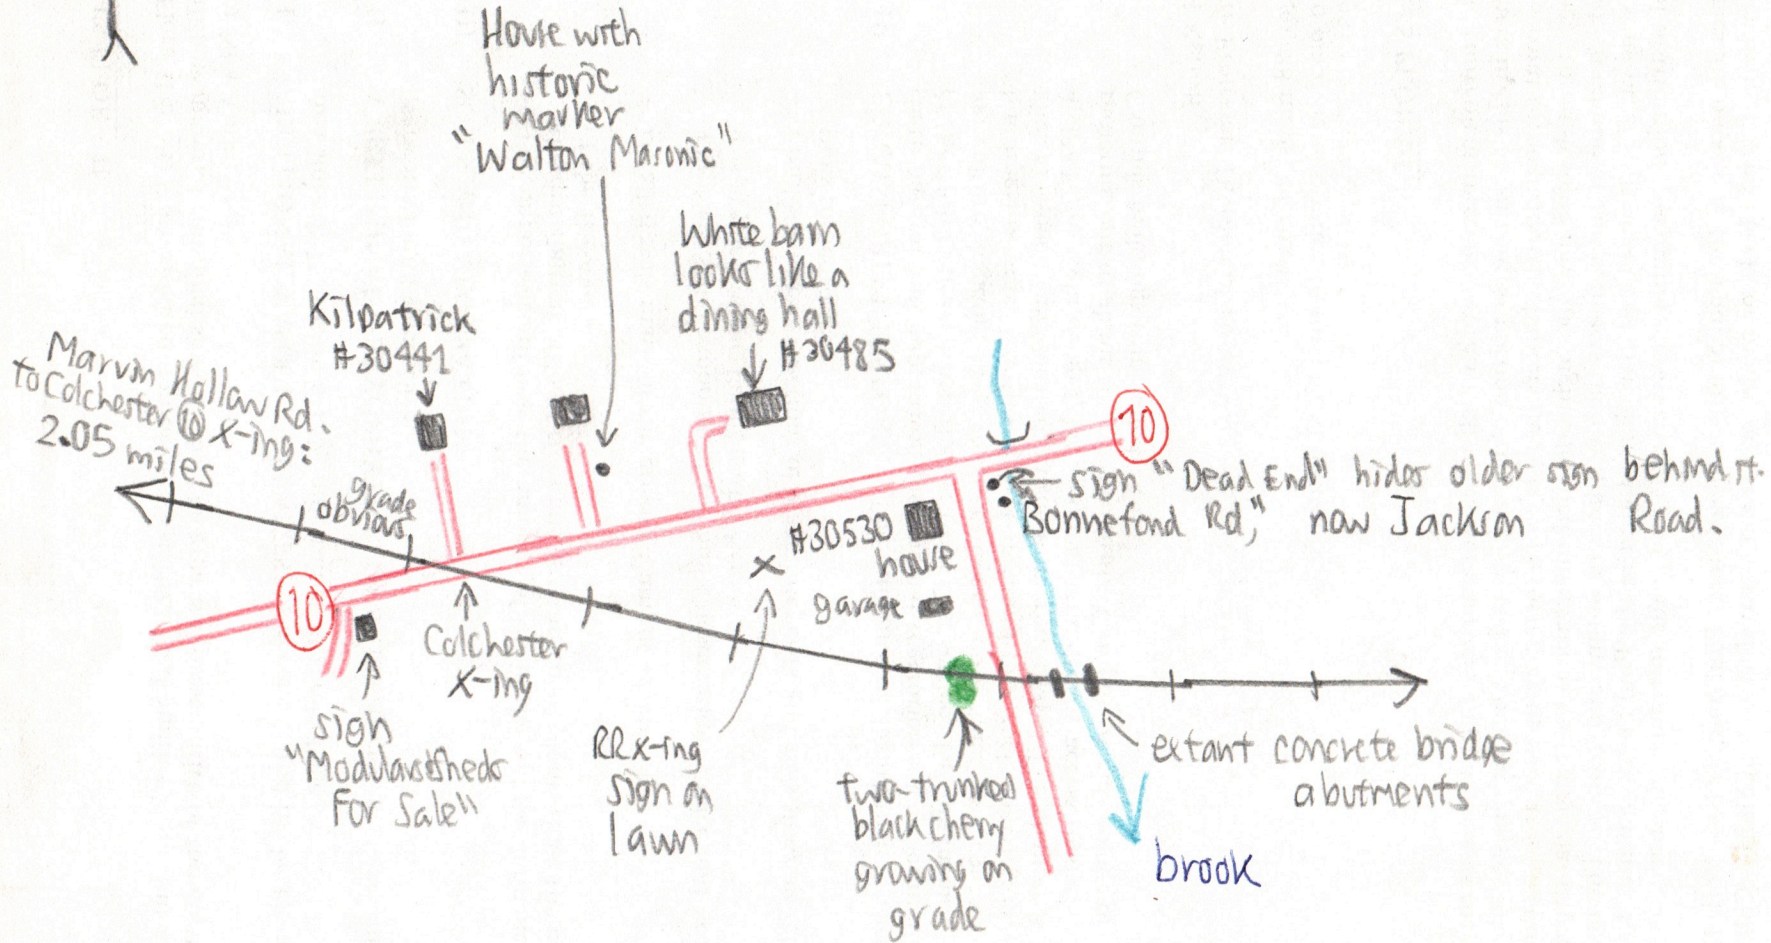 House with
historic
marker
"Walton Masonic"
White barn
looks like a
dining hall
#30485
Kilpatrick
#30441
Marvin Hollow Rd.
to Colchester 10 X-ing:
2.05 miles
grade
obvious
10
sign "Dead End" hides older sign behind it.
"Bonnefond Rd," now Jackson Road.
#30530
house
garage
10
Colchester
X-ing
sign
"Modular Sheds
For Sale"
RR X-ing
sign on
lawn
two-trunked
black cherry
growing on
grade
extant concrete bridge
abutments
brook